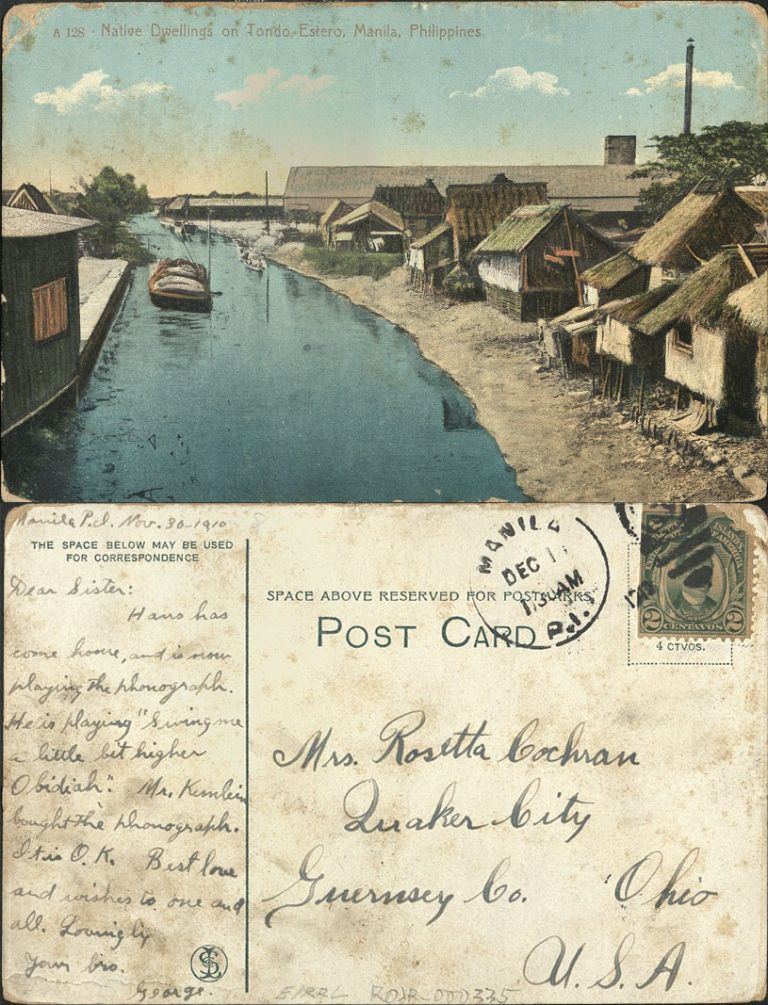 A 128 - Native Dwellings on Tondo Estero, Manila, Philippines
Manila P.I. Nov. 30-1910
THE SPACE BELOW MAY BE USED
FOR CORRESPONDENCE
Dear Sister:
Hans has
come home, and is now
playing the phonograph.
He is playing "Swing me
a little bit higher
Obidiah". Mr. Kimlein
bought the phonograph.
It is O.K. Best love
and wishes to one and
all. Lovingly
Your bro.
George.
SPACE ABOVE RESERVED FOR POSTMARKS
POST CARD
MANILA
DEC 1
1130AM
P.I.
PHILIPPINE
ISLANDS
UNITED STATES
OF AMERICA
2 CENTAVOS 2
4 CTVOS.
Mrs. Rosetta Cochran
Quaker City
Guernsey Co. Ohio
U.S.A.